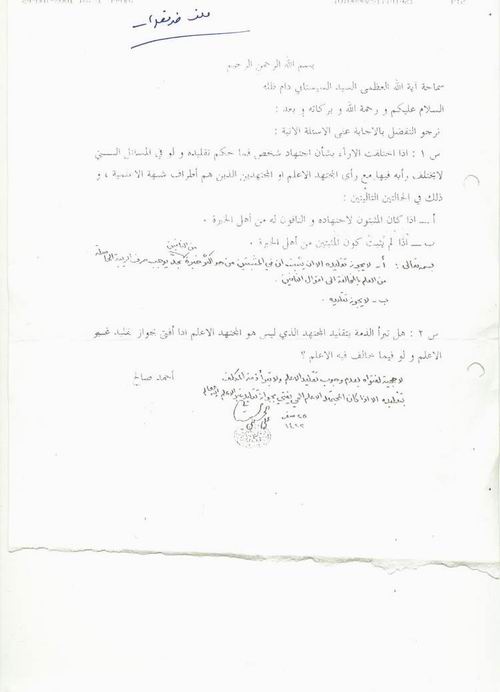 بسم الله الرحمن الرحيم
سماحة آية الله العظمى السيد السيستاني دام ظله
السلام عليكم و رحمة الله و بركاته و بعد :
نرجو التفضل بالاجابة على الاسئلة الاتية :
س ١ : اذا اختلفت الآراء بشأن اجتهاد شخص فما حكم تقليده و لو في المسائل التي
لايختلف رأيه فيها مع رأى المجتهد الاعلم او المجتهدين الذين هم أطراف شبهة الاعلمية ، و
ذلك في الحالتين التاليتين :
أ ــ اذا كان المثبتون لاجتهاده و النافون له من أهل الخبرة .
ب ــ اذا لم يثبت كون المثبتين من أهل الخبرة .
بسمه تعالى : أ- لا يجوز تقليده الا ان يثبت ان في المثبتين من هو اكثر خبرة من النافين بحد يوجب صرف الريبة الحاصلة
من العلم بالمخالفة الى اقوال النافين .
ب- لا يجوز تقليده .
س ٢ : هل تبرأ الذمة بتقليد المجتهد الذي ليس هو المجتهد الاعلم اذا أفتى بجواز تقليد غير
الاعلم و لو فيما خالف فيه الاعلم ؟
أحمد صالح
لا حجية لفتواه بعدم وجوب تقليد الاعلم ولا تبرأ ذمة المكلف
بتقليده الا اذا كان المجتهد الاعلم يفتي بجواز تقليد غير الاعلم
٢٥ صفر
١٤٢٢